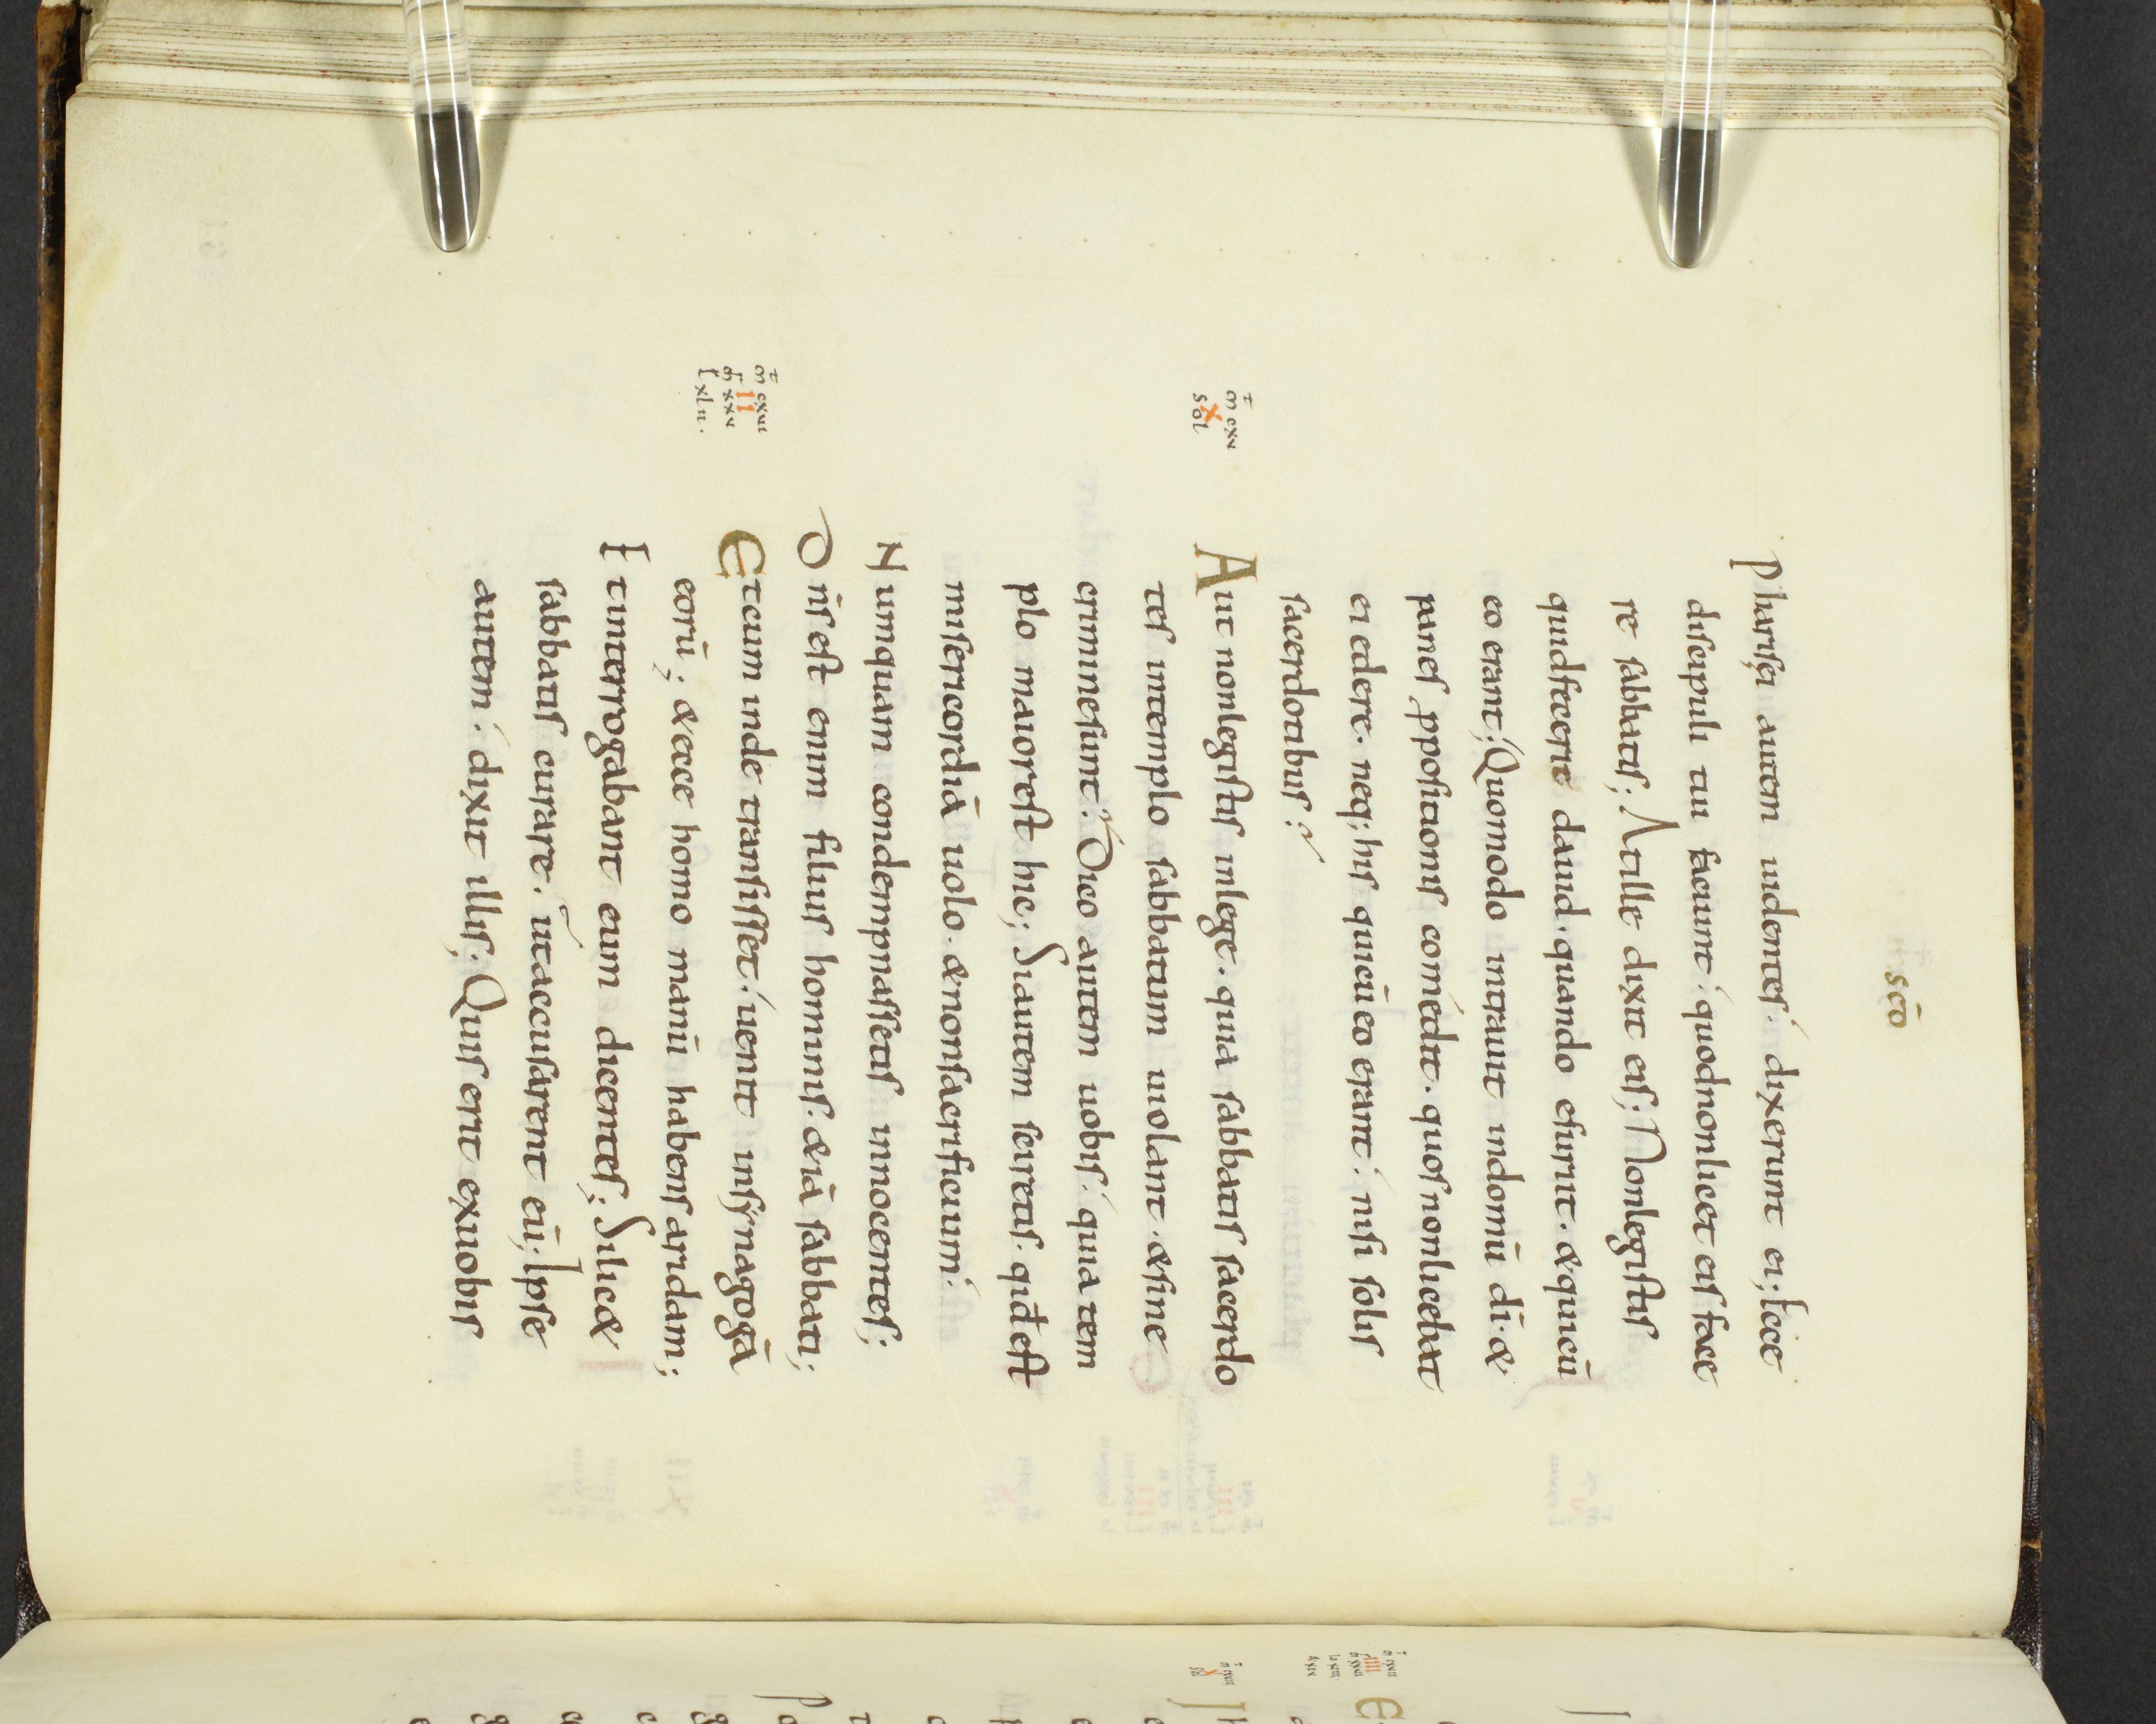 SCD̄O
Pharisei autem uidentes. dixerunt ei; Ecce
discipuli tui faciunt. quodnonlicet eis face
re sabbatis; Atille dixit eis; Nonlegistis
quidfecerit dauid. quando esuriit. &quicū
eo erant; Quomodo intrauit indomū dī. &
panes ꝓpositionis comedit. quosnonlicebat
ei edere. neq; his quicū eo erant. nisi solis
sacerdotibus?
m̄ cxv
X
sol
Aut nonlegistis inlege. quia sabbatis sacerdo
tes intemplo sabbatum uiolant. &sine
criminesunt? Dico autem uobis. quia tem
plo maiorest hic; Siautem sciretis. qid est
misericordiā uolo. &nonsacrificium.
Numquam condempnassetis innocentes;
Dn̄sest enim filius hominis. &iā sabbati;
m̄ cxvi
II
m̄r xxv
l xlii.
Etcum inde transisset. uenit insynagogā
eorū; &ecce homo manū habens aridam;
Etinterrogabant eum dicentes; Silic&
sabbatis curare. utaccusarent eū; Ipse
autem. dixit illis; Quiserit exuobis